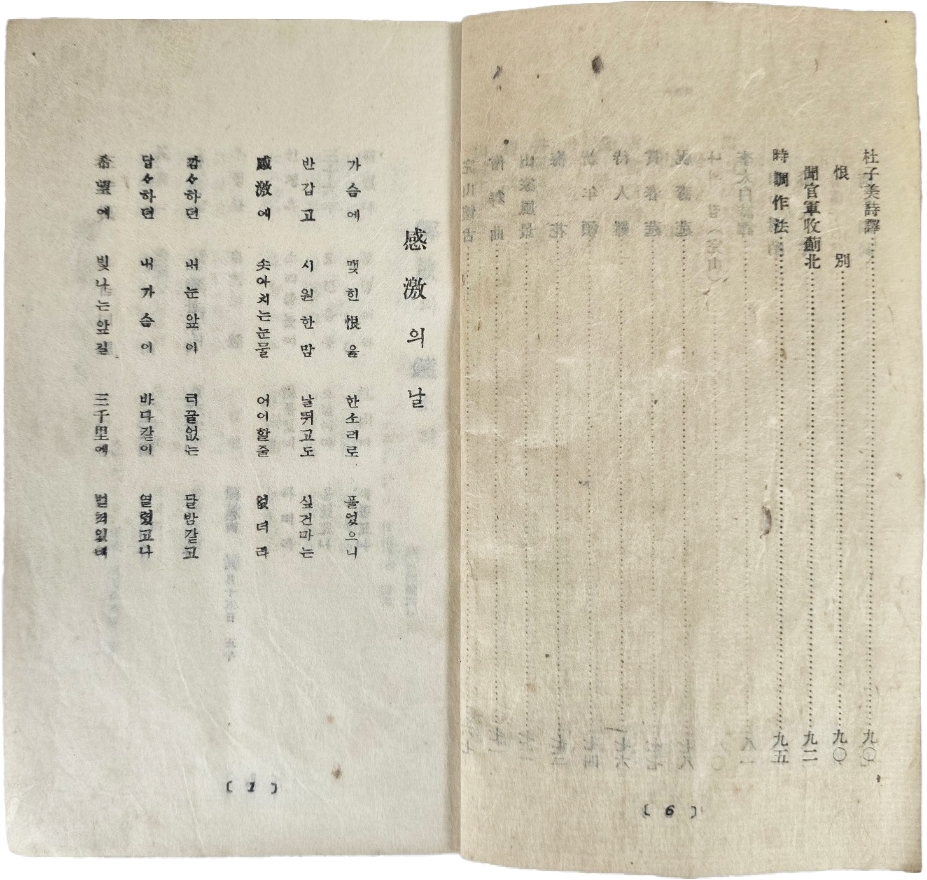 杜子美詩譯……九〇
恨別……九〇
聞官軍收薊北……九二
時調作法……九五
〔6〕
感激의날
가슴에 맺힌恨을 한소리로 풀었으니
반갑고 시원한맘 날뛰고도 싶건마는
感激에 솟아치는눈물 어이할줄 없더라
캄々하던 내눈앞이 티끌없는 달밤같고
답々하던 내가슴이 바다같이 열렸고나
希望에 빛나는앞길 三千里에 벌려있네
〔1〕